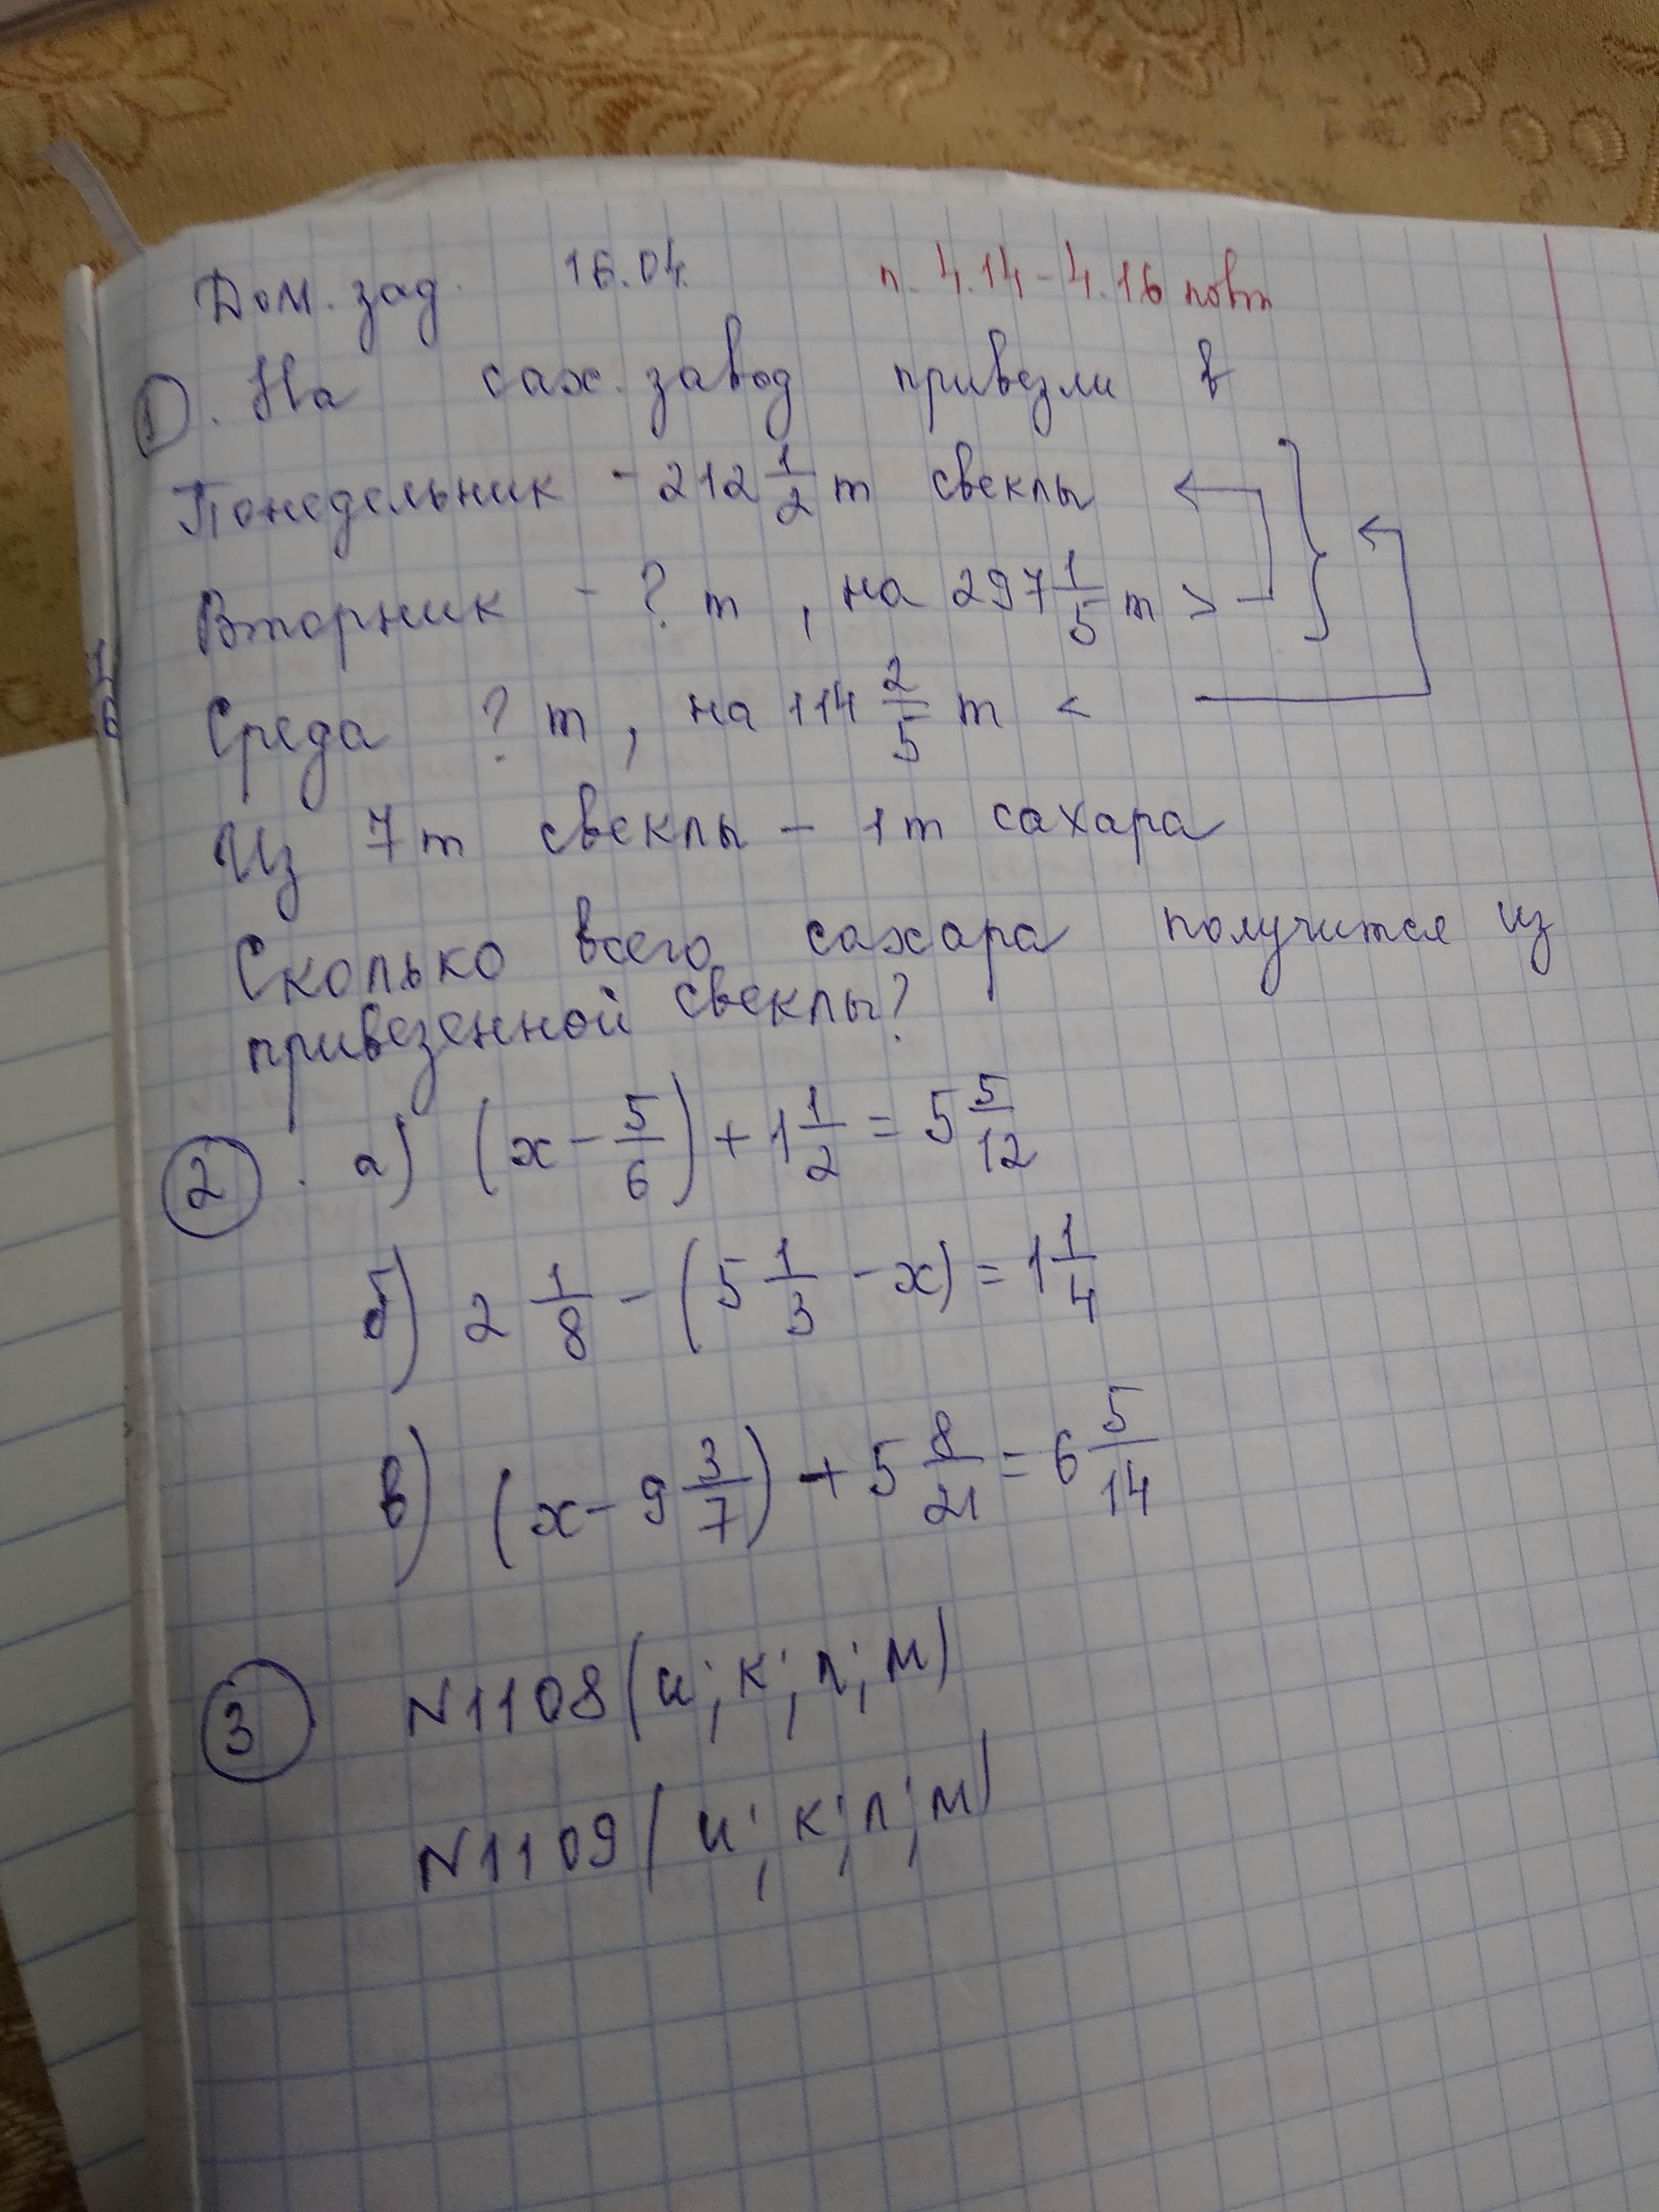 Дом. зад. 16.04. п. 4.14 - 4.16 повт
①. На сах. завод привезли в
Понедельник - 212 1/2 т свеклы
Вторник - ? т, на 297 1/5 т >
Среда ? т, на 114 2/5 т <
Из 7 т свеклы - 1 т сахара
Сколько всего сахара получится из
привезенной свеклы?
②. а) (x - 5/6) + 1 1/2 = 5 5/12
б) 2 1/8 - (5 1/3 - x) = 1 1/4
в) (x - 9 3/7) + 5 8/21 = 6 5/14
③ N1108 (и; к; л; м)
N1109 (и; к; л; м)